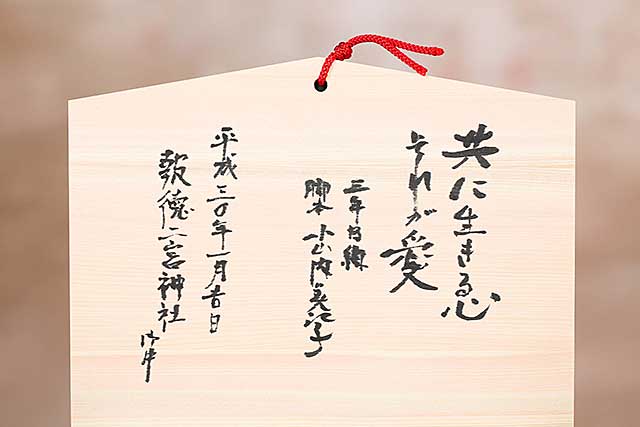 共に生きる心
それが愛
三年B組
脚本 小山内美江子
平成三〇年一月吉日
報徳二宮神社